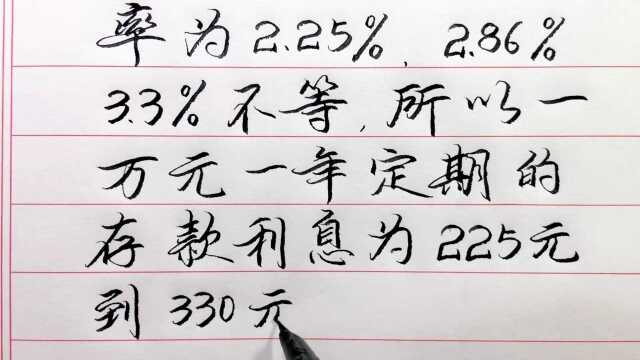 率为2.25%，2.86%
3.3%不等，所以一
万元一年定期的
存款利息为225元
到330元